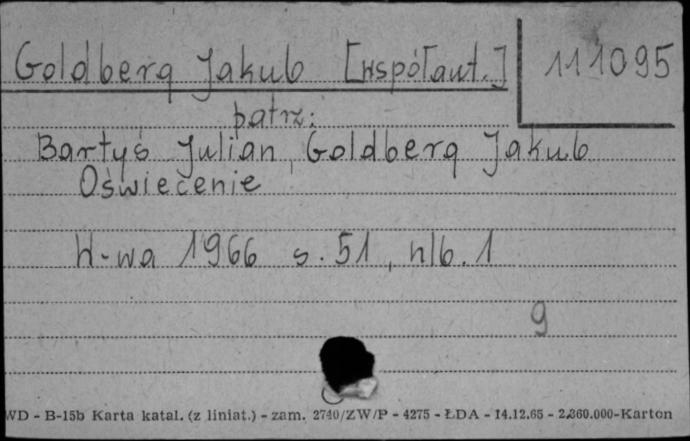 Goldberg Jakub [współaut.] 111095
patrz:
Bartyś Julian, Goldberg Jakub
Oświecenie
W-wa 1966 s. 51, nlb. 1
9
WD - B-15b Karta katal. (z liniat.) - zam. 2740/ZW/P - 4275 - ŁDA - 14.12.65 - 2.360.000-Karton